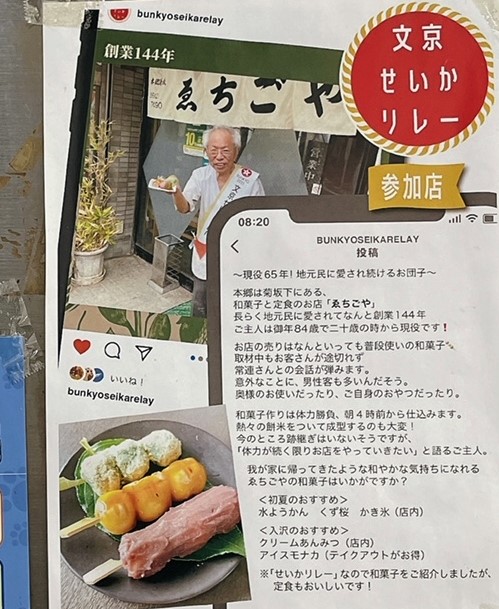 bunkyoseikarelay
創業144年
ゑちごや
営業中
文京
せいか
リレー
参加店
08:20
BUNKYOSEIKARELAY
投稿
～現役65年！地元民に愛され続けるお団子～
本郷は菊坂下にある、
和菓子と定食のお店「ゑちごや」
長らく地元民に愛されてなんと創業144年
ご主人は御年84歳で二十歳の時から現役です❗
お店の売りはなんといっても普段使いの和菓子
取材中もお客さんが途切れず
常連さんとの会話が弾みます。
意外なことに、男性客も多いんだそう。
奥様のお使いだったり、ご自身のおやつだったり。
和菓子作りは体力勝負、朝4時前から仕込みます。
熱々の餅米をついて成型するのも大変！
今のところ跡継ぎはいないそうですが、
「体力が続く限りお店をやっていきたい」と語るご主人。
我が家に帰ってきたような和やかな気持ちになれる
ゑちごやの和菓子はいかがですか？
＜初夏のおすすめ＞
水ようかん　くず桜　かき氷（店内）
＜入沢のおすすめ＞
クリームあんみつ（店内）
アイスモナカ（テイクアウトがお得）
※「せいかリレー」なので和菓子をご紹介しましたが、
定食もおいしいです！
いいね！
bunkyoseikarelay